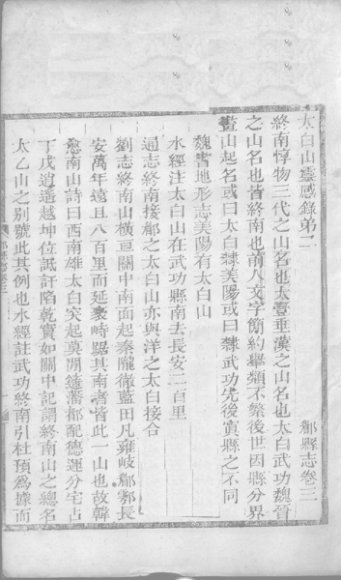 太白山靈感錄第二　鄠縣志卷三
終南惇物三代之山名也太壹垂漢之山名也太白武功魏晉
之山名也皆終南也前人文字簡約舉類不繁後世因縣分界
畫山起名或曰太白隸美陽或曰隸武功先後寘縣之不同
魏書地形志美陽有太白山
水經注太白山在武功縣南去長安二百里
通志終南接郿之太白山亦與洋之太白接合
劉志終南山橫亘關中南面起秦隴徹藍田凡雍岐郿鄠長
安萬年遠且八百里而延袤峙踞其南者皆此一山也故韓
愈南山詩曰西南雄太白突起莫間簉藩都配德運分宅占
丁戊逍遙越坤位詆訐陷乾竇如關中記謂終南山之總名
太乙山之別號此其例也水經註武功終南引杜預為據而